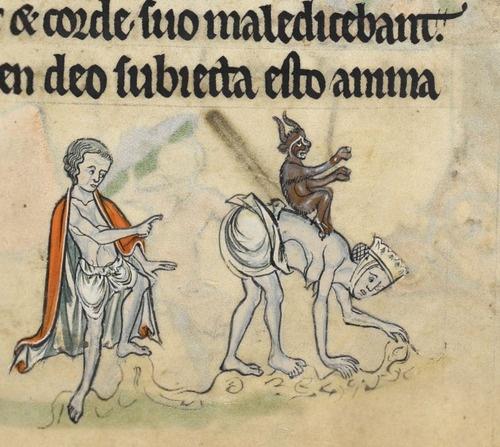 & corde suo maledicebant:
en deo subiecta esto anima